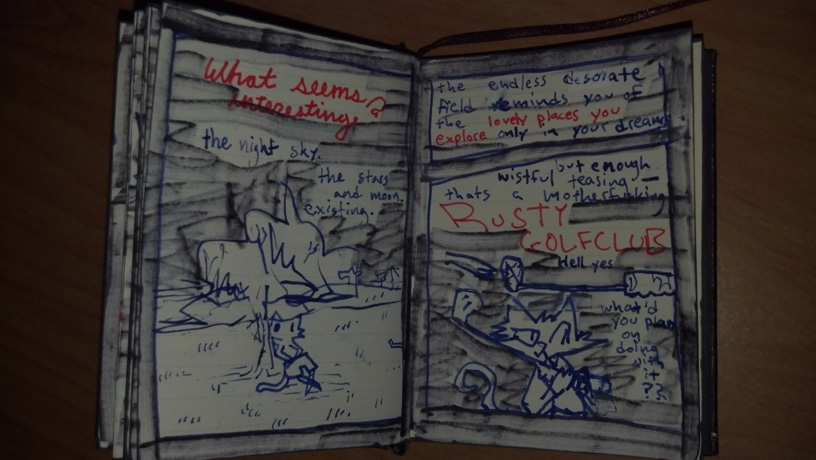 What seems
interesting?
the night sky.
the stars
and moon.
existing.
the endless desolate
field reminds you of
the lovely places you
explore only in your dreams
but enough
wistful teasing—
thats a motherfucking
RUSTY
GOLFCLUB
Hell yes
what'd
you plan
on
doing
with
it
??